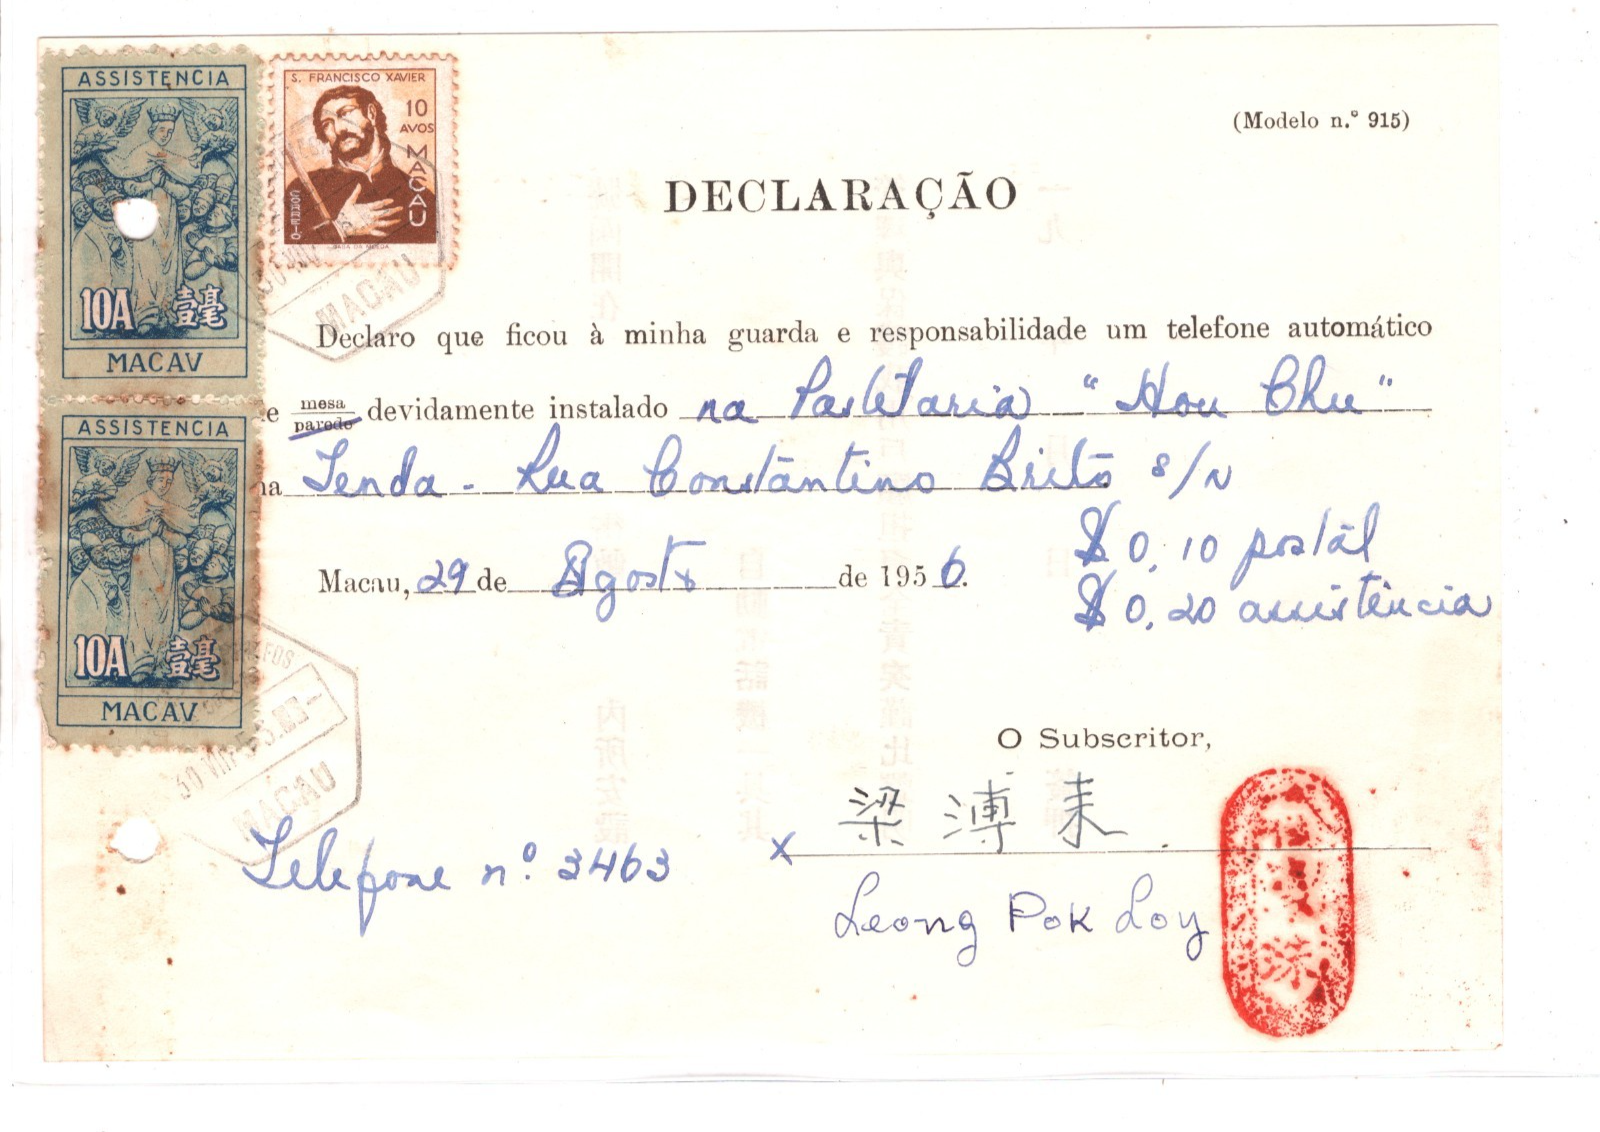 ASSISTENCIA
10A 壹毫
MACAV
S. FRANCISCO XAVIER
10
AVOS
MACAU
CORREIO
CASA DA MOEDA
MACAU
(Modelo n.º 915)
DECLARAÇÃO
Declaro que ficou à minha guarda e responsabilidade um telefone automático
e mesa
parede devidamente instalado na Pastelaria "Hou Chu"
na Tenda - Rua Constântino Brito s/n
ASSISTENCIA
10A 壹毫
MACAV
Macau, 29 de Agosto de 1956.
$ 0,10 postál
$ 0,20 assistência
MACAU
O Subscritor,
x 梁溥耒
Telefone n.º 3463
Leong Pok Loy